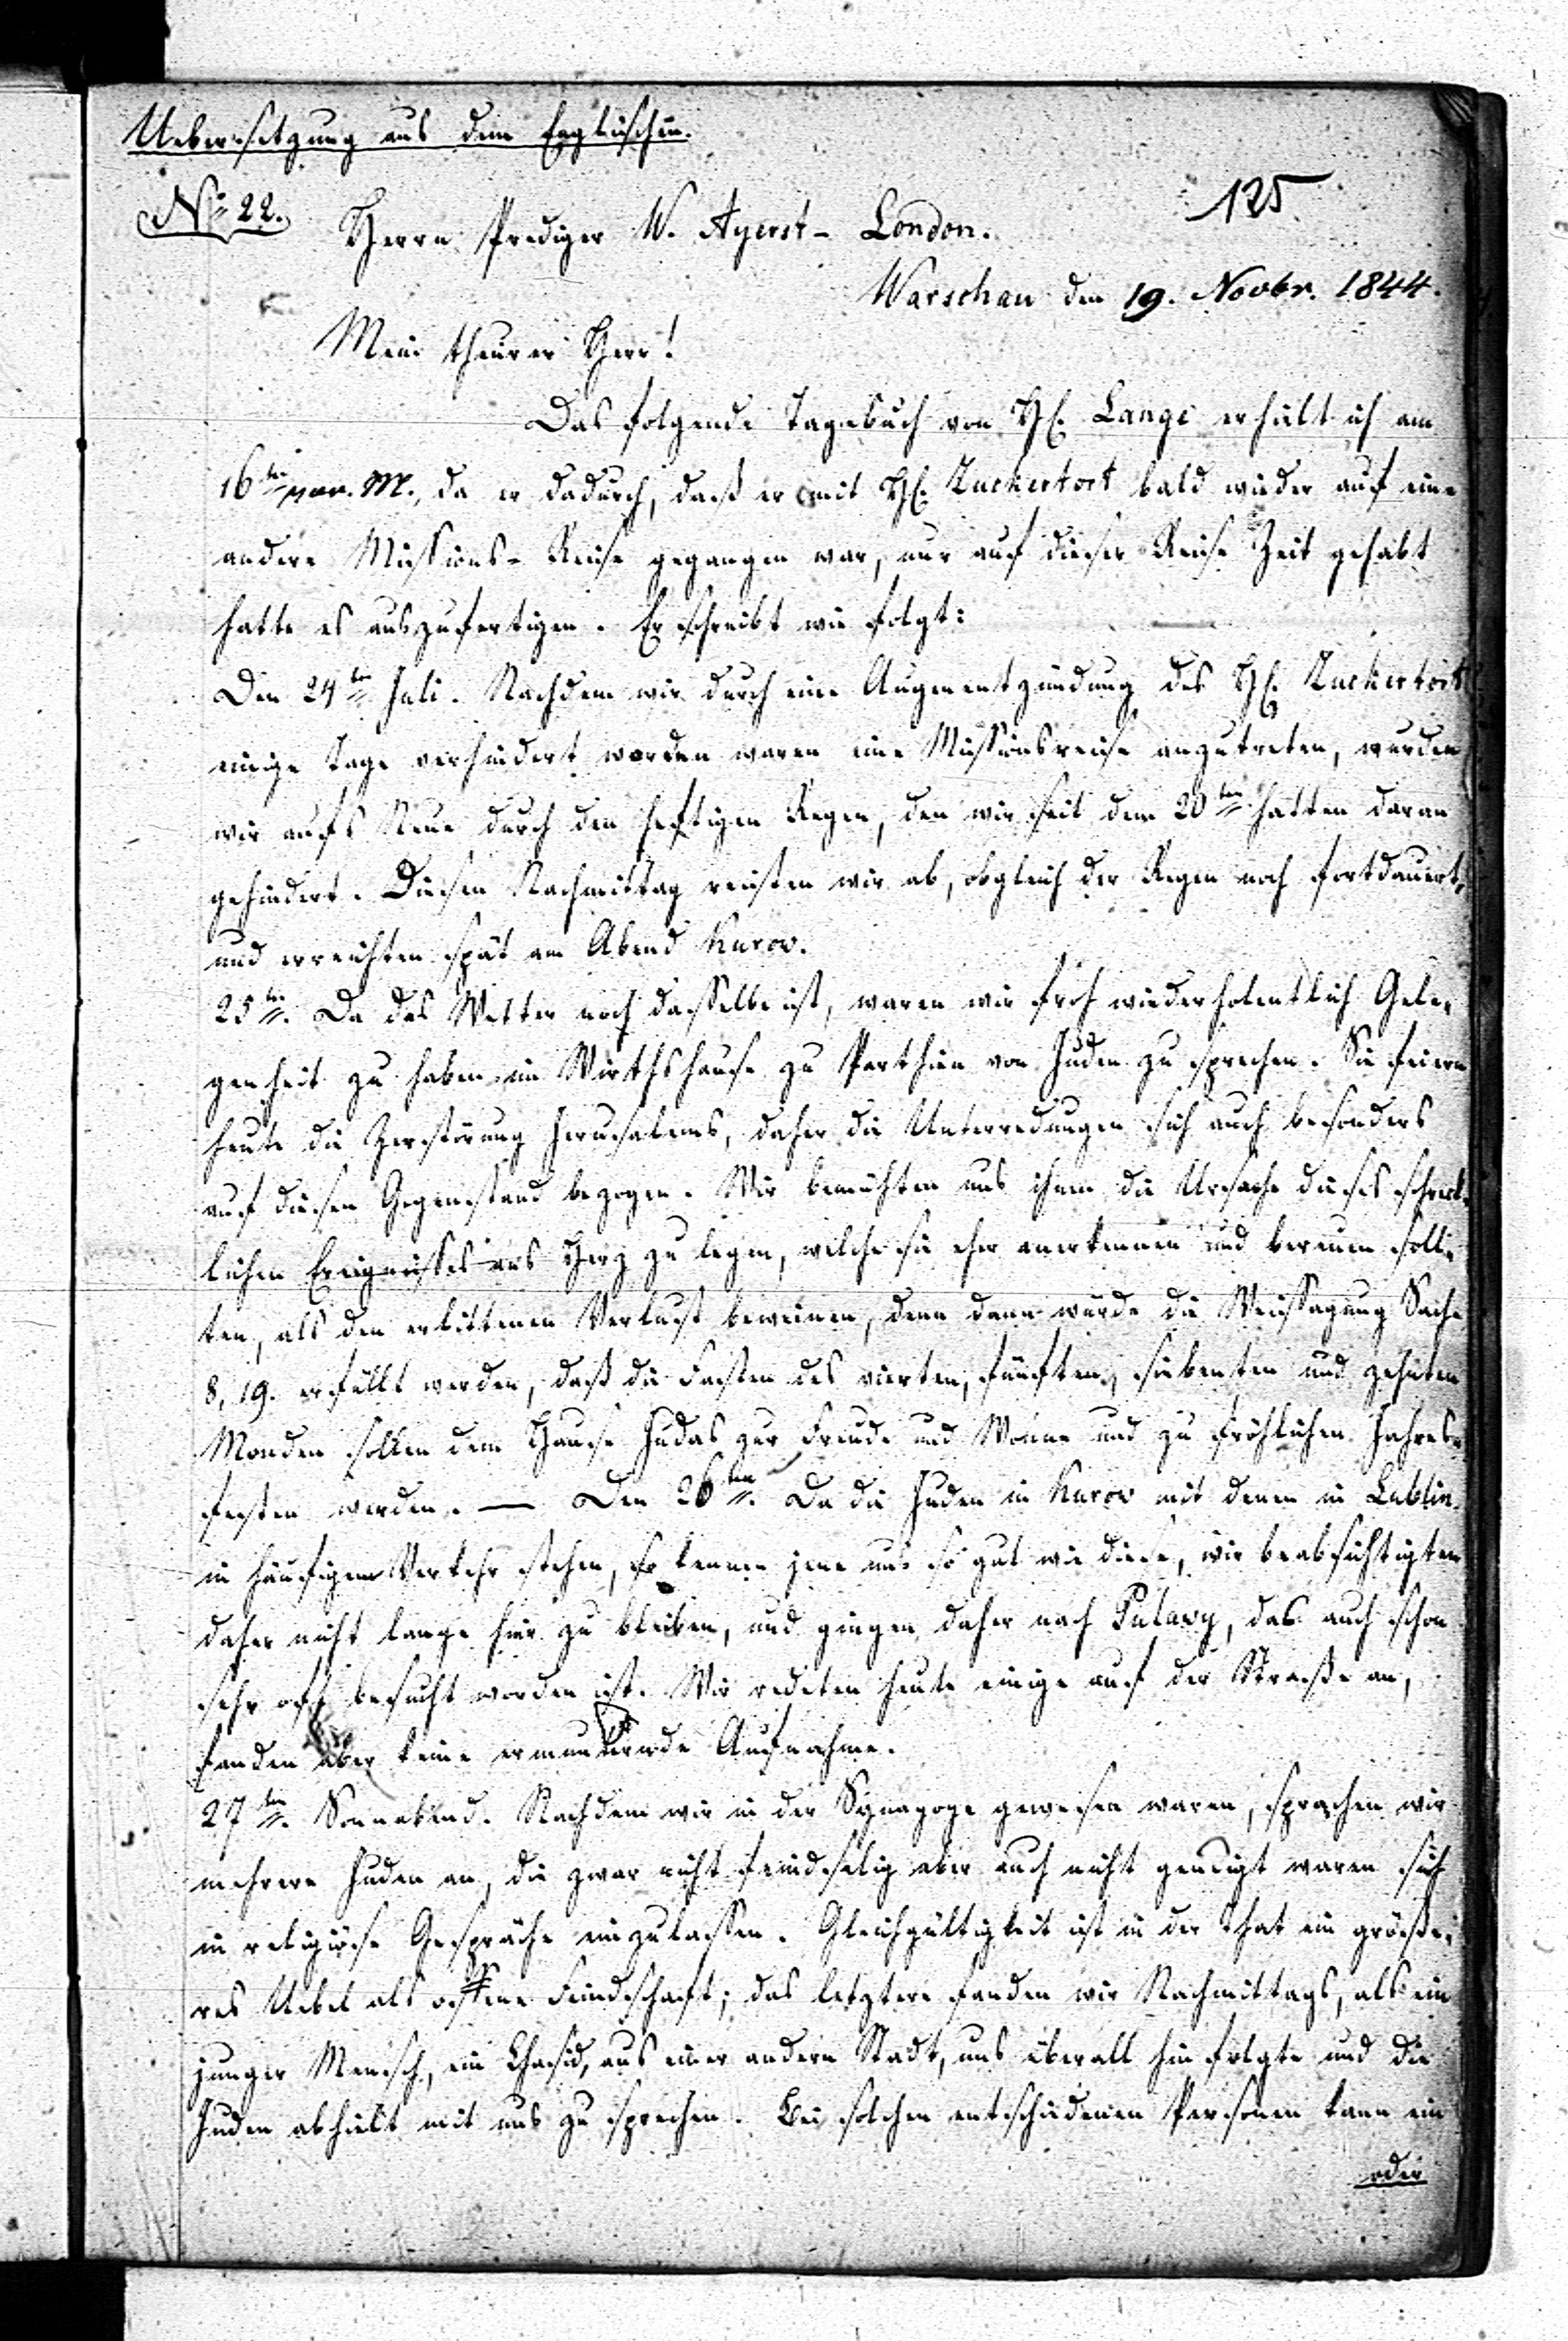 Uebersetzung aus dem Englischen.
125
No 22.
Herrn Prediger W. Ayerst - London.
Warschau den 19. Novbr. 1844.
Mein theurer Herr!
Das folgende Tagebuch von H. Lange erhielt ich am
16ten vor. M., da er dadurch, daß er mit H. Zuckertort bald wieder auf eine
andere Missions-Reise gegangen war, nur auf dieser Reise Zeit gehabt
hatte es auszufertigen. Er schreibt wie folgt:
Den 24ten Juli. Nachdem wir durch eine Augenentzündung des H. Zuckertort
einige Tage verhindert worden waren eine Missionsreise anzutreten, wurden
wir aufs Neue durch den heftigen Regen, den wir seit dem 20ten hatten daran
gehindert. Diesen Nachmittag reisten wir ab, obgleich der Regen noch fortdauert,
und erreichten spät am Abend Kurow.
25ten. Da das Wetter noch dasselbe ist, waren wir froh wiederholentlich Gele-
genheit zu haben im Wirthshause zu Parthien von Juden zu sprechen. Sie feiern
heute die Zerstörung Jerusalems, daher die Unterredungen sich auch besonders
auf diesen Gegenstand bezogen. Wir bemühten uns ihnen die Ursache dieses schreck-
lichen Ereignisses ans Herz zu legen, welche sie eher anerkennen und bereuen soll-
ten, als den erlittenen Verlust beweinen, denn dann würde die Weissagung Sach.
8, 19. erfüllt werden, daß die Fasten des vierten, fünften, siebenten und zehnten
Monden sollen dem Hause Judas zur Freude und Wonne und zu fröhlichen Jahres-
festen werden. — Den 26ten. Da die Juden in Kurow mit denen in Lublin
in häufigem Verkehr stehen, so kennen jene uns so gut wie diese, wir beabsichtigten
daher nicht lange hier zu bleiben, und gingen daher nach Pulawy, das auch schon
sehr oft besucht worden ist. Wir redeten heute einige auf der Straße an,
fanden aber keine ermunternde Aufnahme.
27ten. Sonnabend. Nachdem wir in der Synagoge gewesen waren, sprachen wir
mehrere Juden an, die zwar nicht feindselig aber auch nicht geneigt waren sich
in religiöse Gespräche einzulassen. Gleichgültigkeit ist in der That ein größe-
res Uebel als offene Feindschaft; das letztere fanden wir Nachmittags, als ein
junger Mensch, ein Chasid, aus einer andern Stadt, uns überall hin folgte und die
Juden abhielt mit uns zu sprechen. Bei solchen entschiedenen Personen kann ein
oder